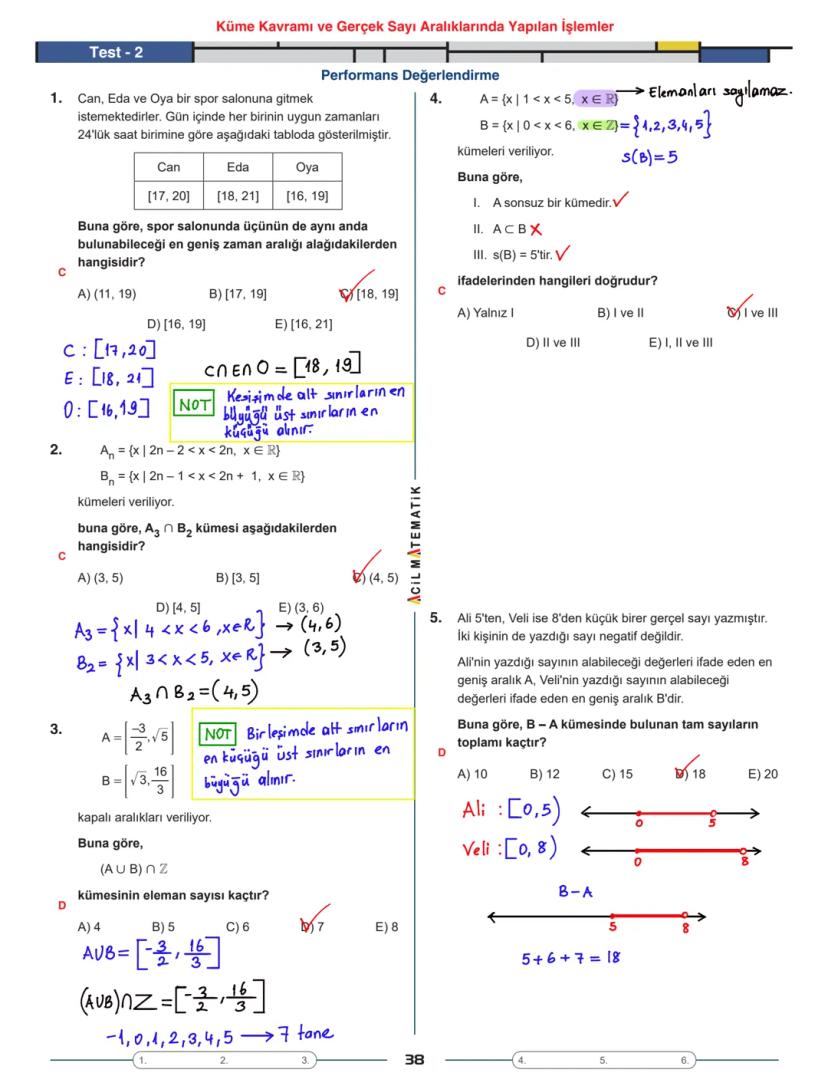 Küme Kavramı ve Gerçek Sayı Aralıklarında Yapılan İşlemler
Test - 2
Performans Değerlendirme
1. Can, Eda ve Oya bir spor salonuna gitmek
istemektedirler. Gün içinde her birinin uygun zamanları
24'lük saat birimine göre aşağıdaki tabloda gösterilmiştir.
Can Eda Oya
[17, 20] [18, 21] [16, 19]
Buna göre, spor salonunda üçünün de aynı anda
bulunabileceği en geniş zaman aralığı alağıdakilerden
hangisidir?
C
A) (11, 19) B) [17, 19] C) [18, 19]
D) [16, 19] E) [16, 21]
C : [17,20]
E : [18, 21]
O : [16,19]
C∩E∩O = [18, 19]
NOT Kesişimde alt sınırların en
büyüğü üst sınırların en
küçüğü alınır.
2. Aₙ = {x | 2n – 2 < x < 2n, x ∈ ℝ}
Bₙ = {x | 2n – 1 < x < 2n + 1, x ∈ ℝ}
kümeleri veriliyor.
buna göre, A₃ ∩ B₂ kümesi aşağıdakilerden
hangisidir?
C
A) (3, 5) B) [3, 5] C) (4, 5)
D) [4, 5] E) (3, 6)
A₃ = {x| 4 < x < 6 ,x∈R} → (4,6)
B₂ = {x| 3 < x < 5, x∈R} → (3,5)
A₃ ∩ B₂ = (4,5)
3. A = [-3/2, √5]
B = [√3, 16/3]
NOT Birleşimde alt sınırların
en küçüğü üst sınırların en
büyüğü alınır.
kapalı aralıkları veriliyor.
Buna göre,
(A ∪ B) ∩ ℤ
kümesinin eleman sayısı kaçtır?
D
A) 4 B) 5 C) 6 D) 7 E) 8
A∪B = [-3/2, 16/3]
(A∪B)∩Z = [-3/2, 16/3]
-1,0,1,2,3,4,5 → 7 tane
ACİL MATEMATİK
4. A = {x | 1 < x < 5, x ∈ ℝ} → Elemanları sayılamaz.
B = {x | 0 < x < 6, x ∈ ℤ} = {1,2,3,4,5}
kümeleri veriliyor.
s(B) = 5
Buna göre,
I. A sonsuz bir kümedir. ✓
II. A ⊂ B ✗
III. s(B) = 5'tir. ✓
ifadelerinden hangileri doğrudur?
C
A) Yalnız I B) I ve II C) I ve III
D) II ve III E) I, II ve III
5. Ali 5'ten, Veli ise 8'den küçük birer gerçel sayı yazmıştır.
İki kişinin de yazdığı sayı negatif değildir.
Ali'nin yazdığı sayının alabileceği değerleri ifade eden en
geniş aralık A, Veli'nin yazdığı sayının alabileceği
değerleri ifade eden en geniş aralık B'dir.
Buna göre, B – A kümesinde bulunan tam sayıların
toplamı kaçtır?
D
A) 10 B) 12 C) 15 D) 18 E) 20
Ali : [0,5)
0 5
Veli : [0, 8)
0 8
B-A
5 8
5+6+7 = 18
1. 2. 3. 38 4. 5. 6.